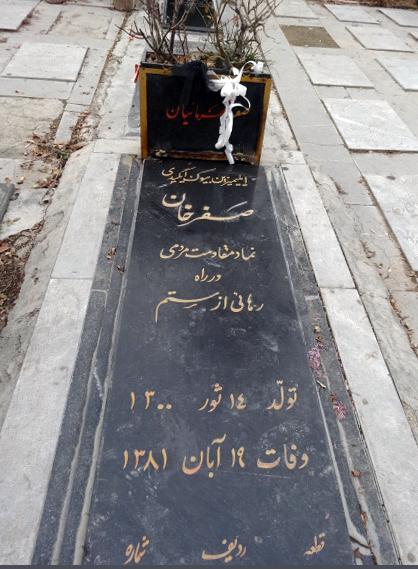 صفر قهرمانیان
صفرخان
نماد مقاومت مردمی
در راه
رهائی از ستم
تولّد ۱۴ ثور ۱۳۰۰
وفات ۱۹ آبان ۱۳۸۱
قطعه ردیف شماره